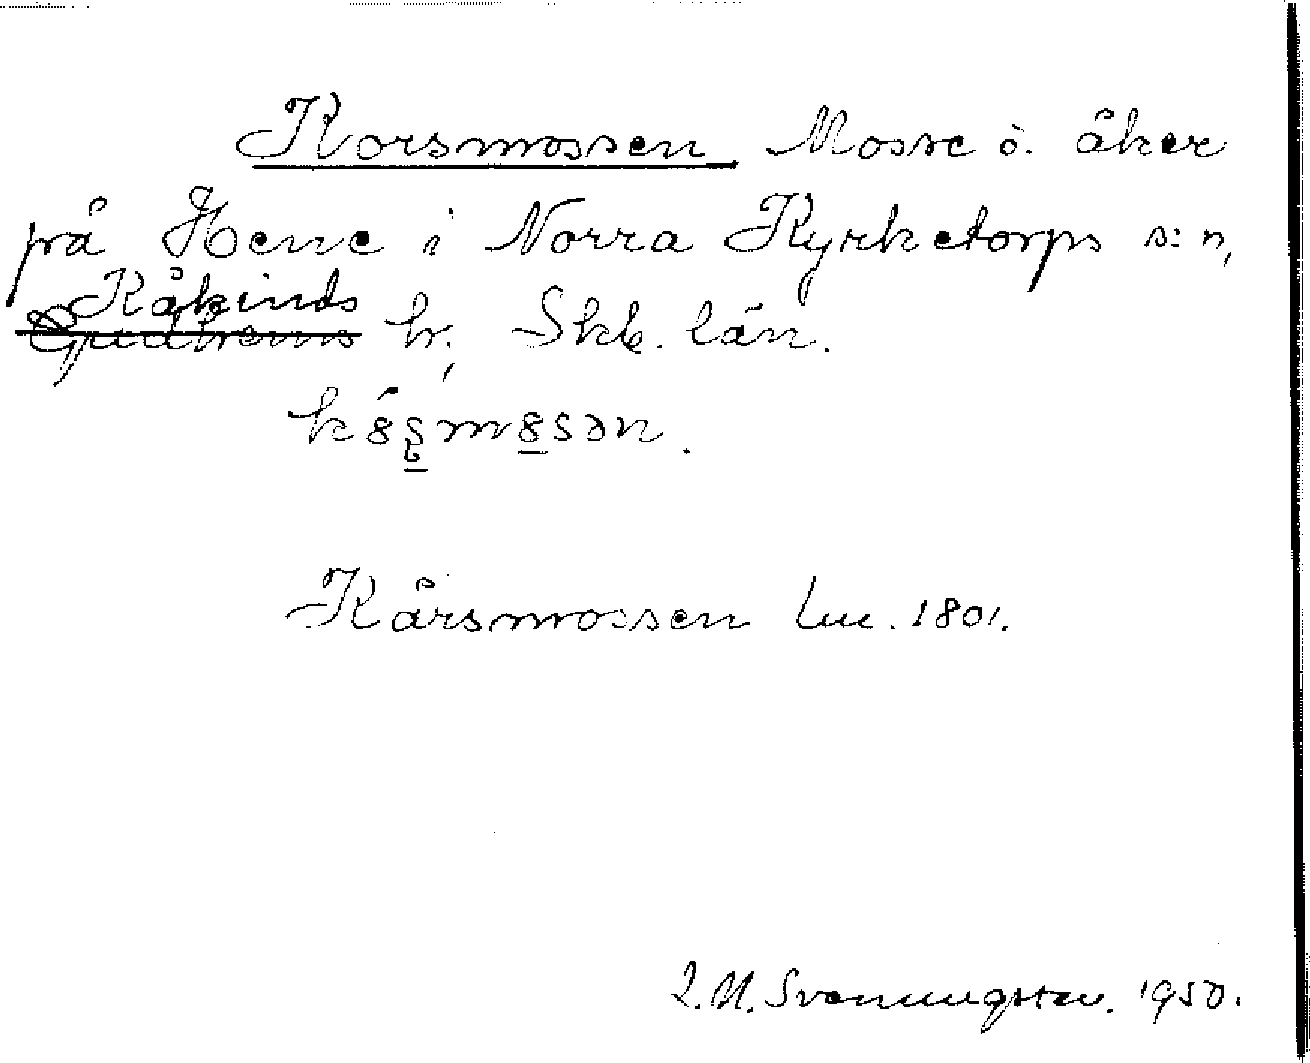 Korsmossen Mosse o. åker
på Hene i Norra Kyrketorps s:n,
Kåkinds
Gudhems hr, Skb. län.
Kårsmossen Lm. 1801.
Svenungsson. 1950.